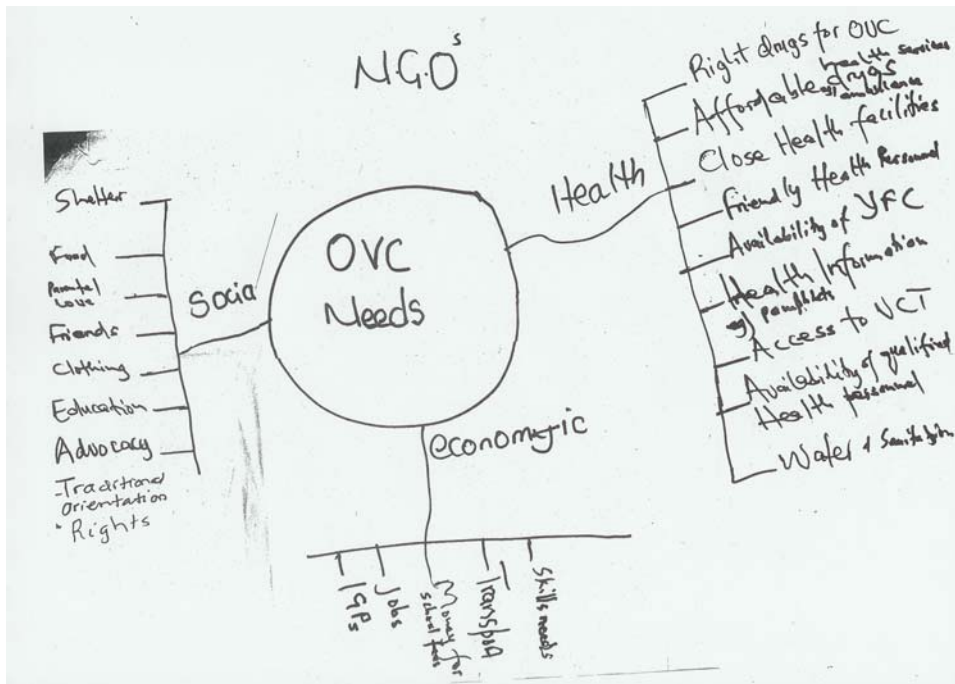 N.G.Os
OVC
Needs
Social
Shelter
Food
Parental
Love
Friends
Clothing
Education
Advocacy
-Traditional
Orientation
Rights
Health
Right drugs for OVC
Affordable drugs
health services
eg ambulance
Close Health facilities
Friendly Health Personnel
Availability of YFC
Health Information
eg pamphlets
Access to VCT
Availability of qualified
Health personnel
Water + Sanitation
economic
IGPs
Jobs
Money for
school fees
Transport
Skills needs